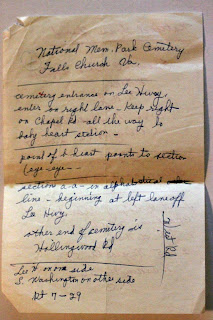 National Mem. Park Cemetery
Falls Church Va.
cemetery entrance on Lee Hiwy,
enter on right lane - Keep right
on Chapel Rd all the way to
heart section -
point of heart points to section
section a-a- in alphabetical order
line - beginning at left lane off
Lee Hwy.
other end of cemetery is
Hollingwood Rd
West Rd
Lee H on one side
S. Washington on othe side
Rt 7-29